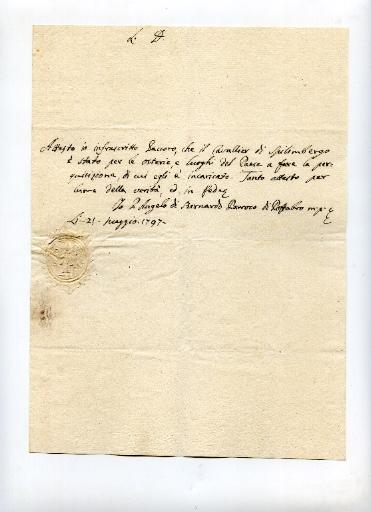 L. D
Attesto io infrascritto Paroco, che il Cavallier di Spilimbergo
è stato per le osterie, e luoghi del Paese a fare la per-
quisizione, di cui egli è incaricato. Tanto attesto per
lume della verità ed in fede
Io P. Angelo di Bernardo Paroco di Poffabro m. p.
Li 21. Maggio. 1797.